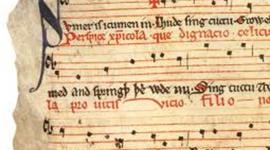 Sumer is icumen in. Lhude sing cuccu. Groweþ
Perspice xp̄icola. que dignacio. celicus
med and springþ þe wde nu. Sing cuccu
la pro uitis vicio. filio